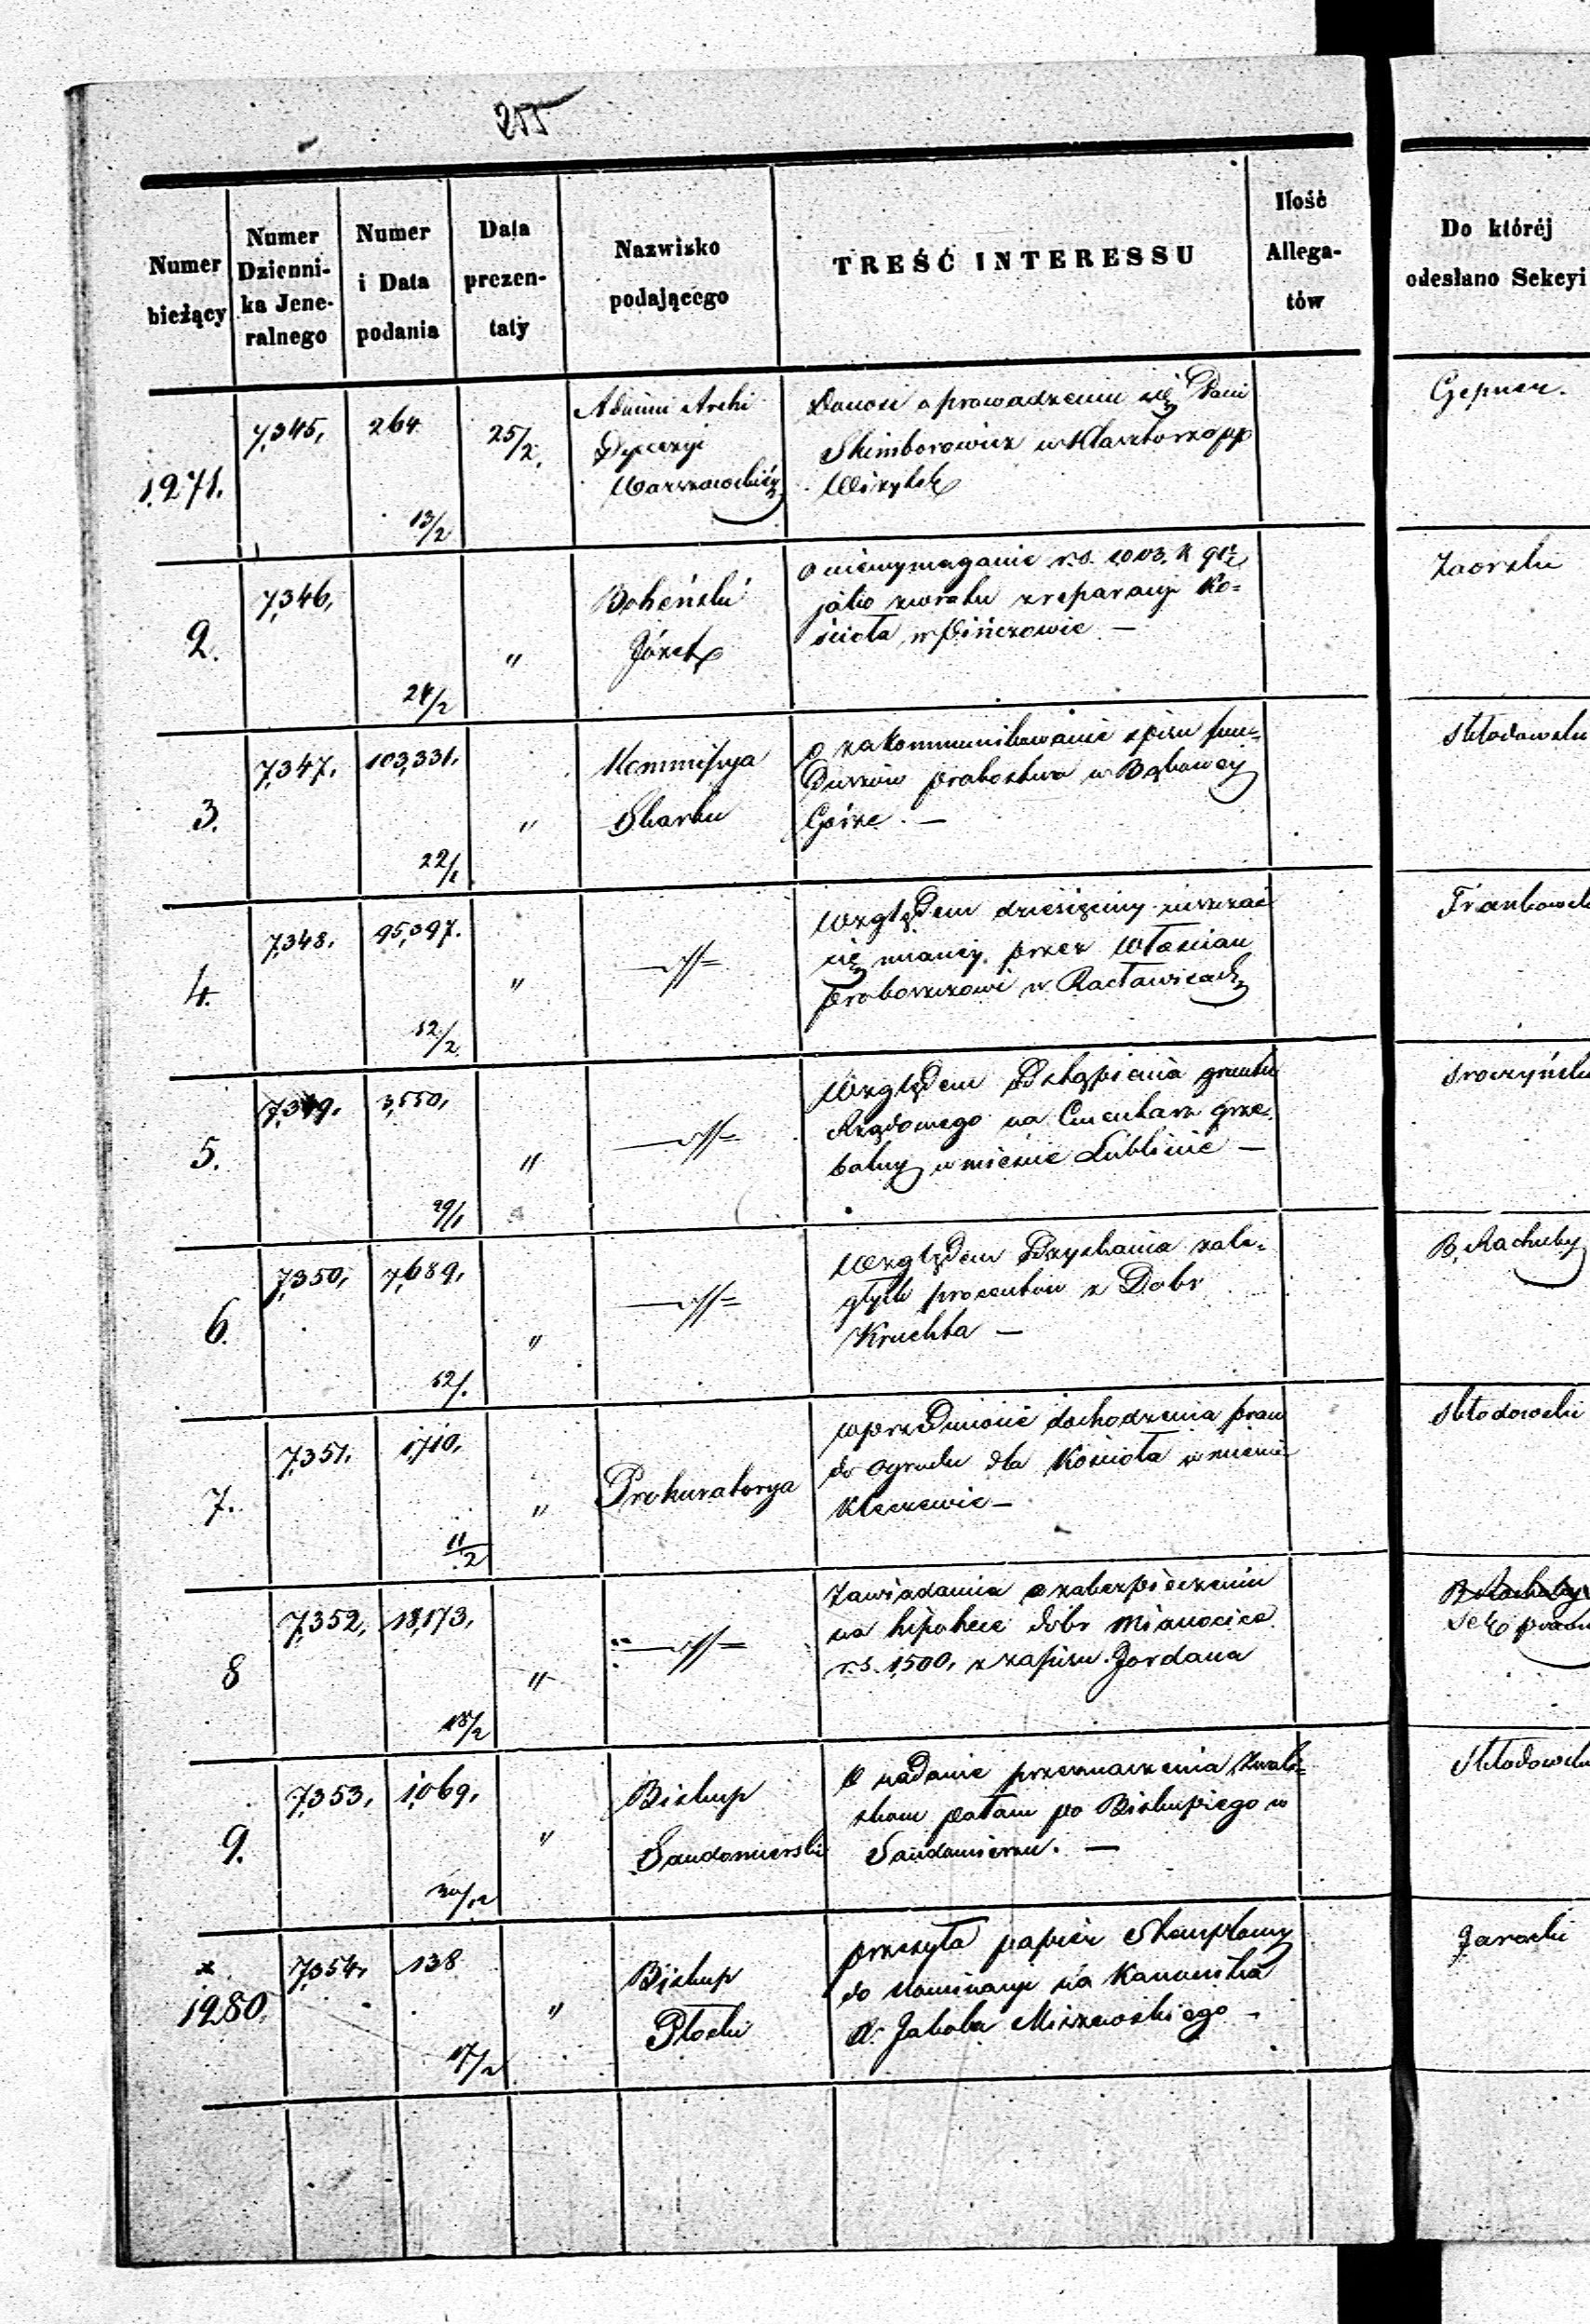 255
Numer bieżący
Numer Dzienni-ka Jene-ralnego
Numer i Data podania
Data prezen-taty
Nazwisko podającego
TREŚĆ INTERESSU
Ilość Allega-tów
Do któréj odesłano Sekcyi
1271.
7,345,
264
13/2
25/2.
Admini Archi
Dyecezyi
Warszawskiéj
Donosi o prowadzeniu się Pani
Skimborowicz w Klasztorze pp
Wizytek
Gepner.
2.
7,346,
24/2
"
Boheński
Józef
O niewymaganie r.s. 1,013. k 91½
jako zwrotu z reparacyi Ko=
ścioła w Pińczowie —
Zaorski
3.
7,347.
103,331.
22/1
"
Kommissya
Skarbu
O zakommunikowanie spisu fun=
duszów probostwa w Bąkowéj
Górze. —
Skłodowski
4.
7,348.
95,397.
12/2
"
Względem dziesięciny uiszczać
się mianéj przez Włościan
proboszczowi w Racławicach
Frankowski
5.
7,349.
3,550,
29/1
"
Względem Odstąpienia gruntu
Rządowego na Cmentarz grze
balny w mieście Lublinie —
Sroczyński
6.
7,350,
7,689,
12/.
"
Względem Odzyskania zale=
głych procentów z Dobr
Kruchta —
B. Rachuby
7.
7,351.
1,710,
11/2
"
Prokuratorya
W przedmiocie dochodzenia praw
do Ogrodu dla Kościoła w mieście
Kleczewie —
Skłodowski
8
7,352,
18,173,
18/2
"
Zawiadamia o zabezpieczeniu
na hipotece dóbr Mianocice
r.s. 1,500, z zapisu Jordana
B Rachuby
Sek prawn
9.
7,353,
1,069,
30/12
"
Biskup
Sandomierski
O nadanie przeznaczenia
po Biskupiego w
Sandomierzu. —
Skłodowski
x
1280.
7,354,
138
17/2
"
Biskup
Płocki
przesyła papier Stemplowy
do Nominacyi na Kanonika
X. Jakóba Miszewskiego —
Jarocki